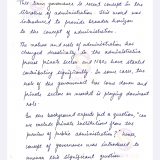 This term governance is recent concept in the
literature of administration. This word was
introduced to provide broader horizon
to the concept of administration.
The nature and role of administration has
changed drastically as the administration
private sector and NGOs have started
contributing significantly. In some cases, the
role of the government has come down and
private sector is needed in playing dominant
role.
In this background experts put a question, "can
we include private institutions from the
purview of public administration?" Hence,
concept of governance was introduced to
answer this significant question.